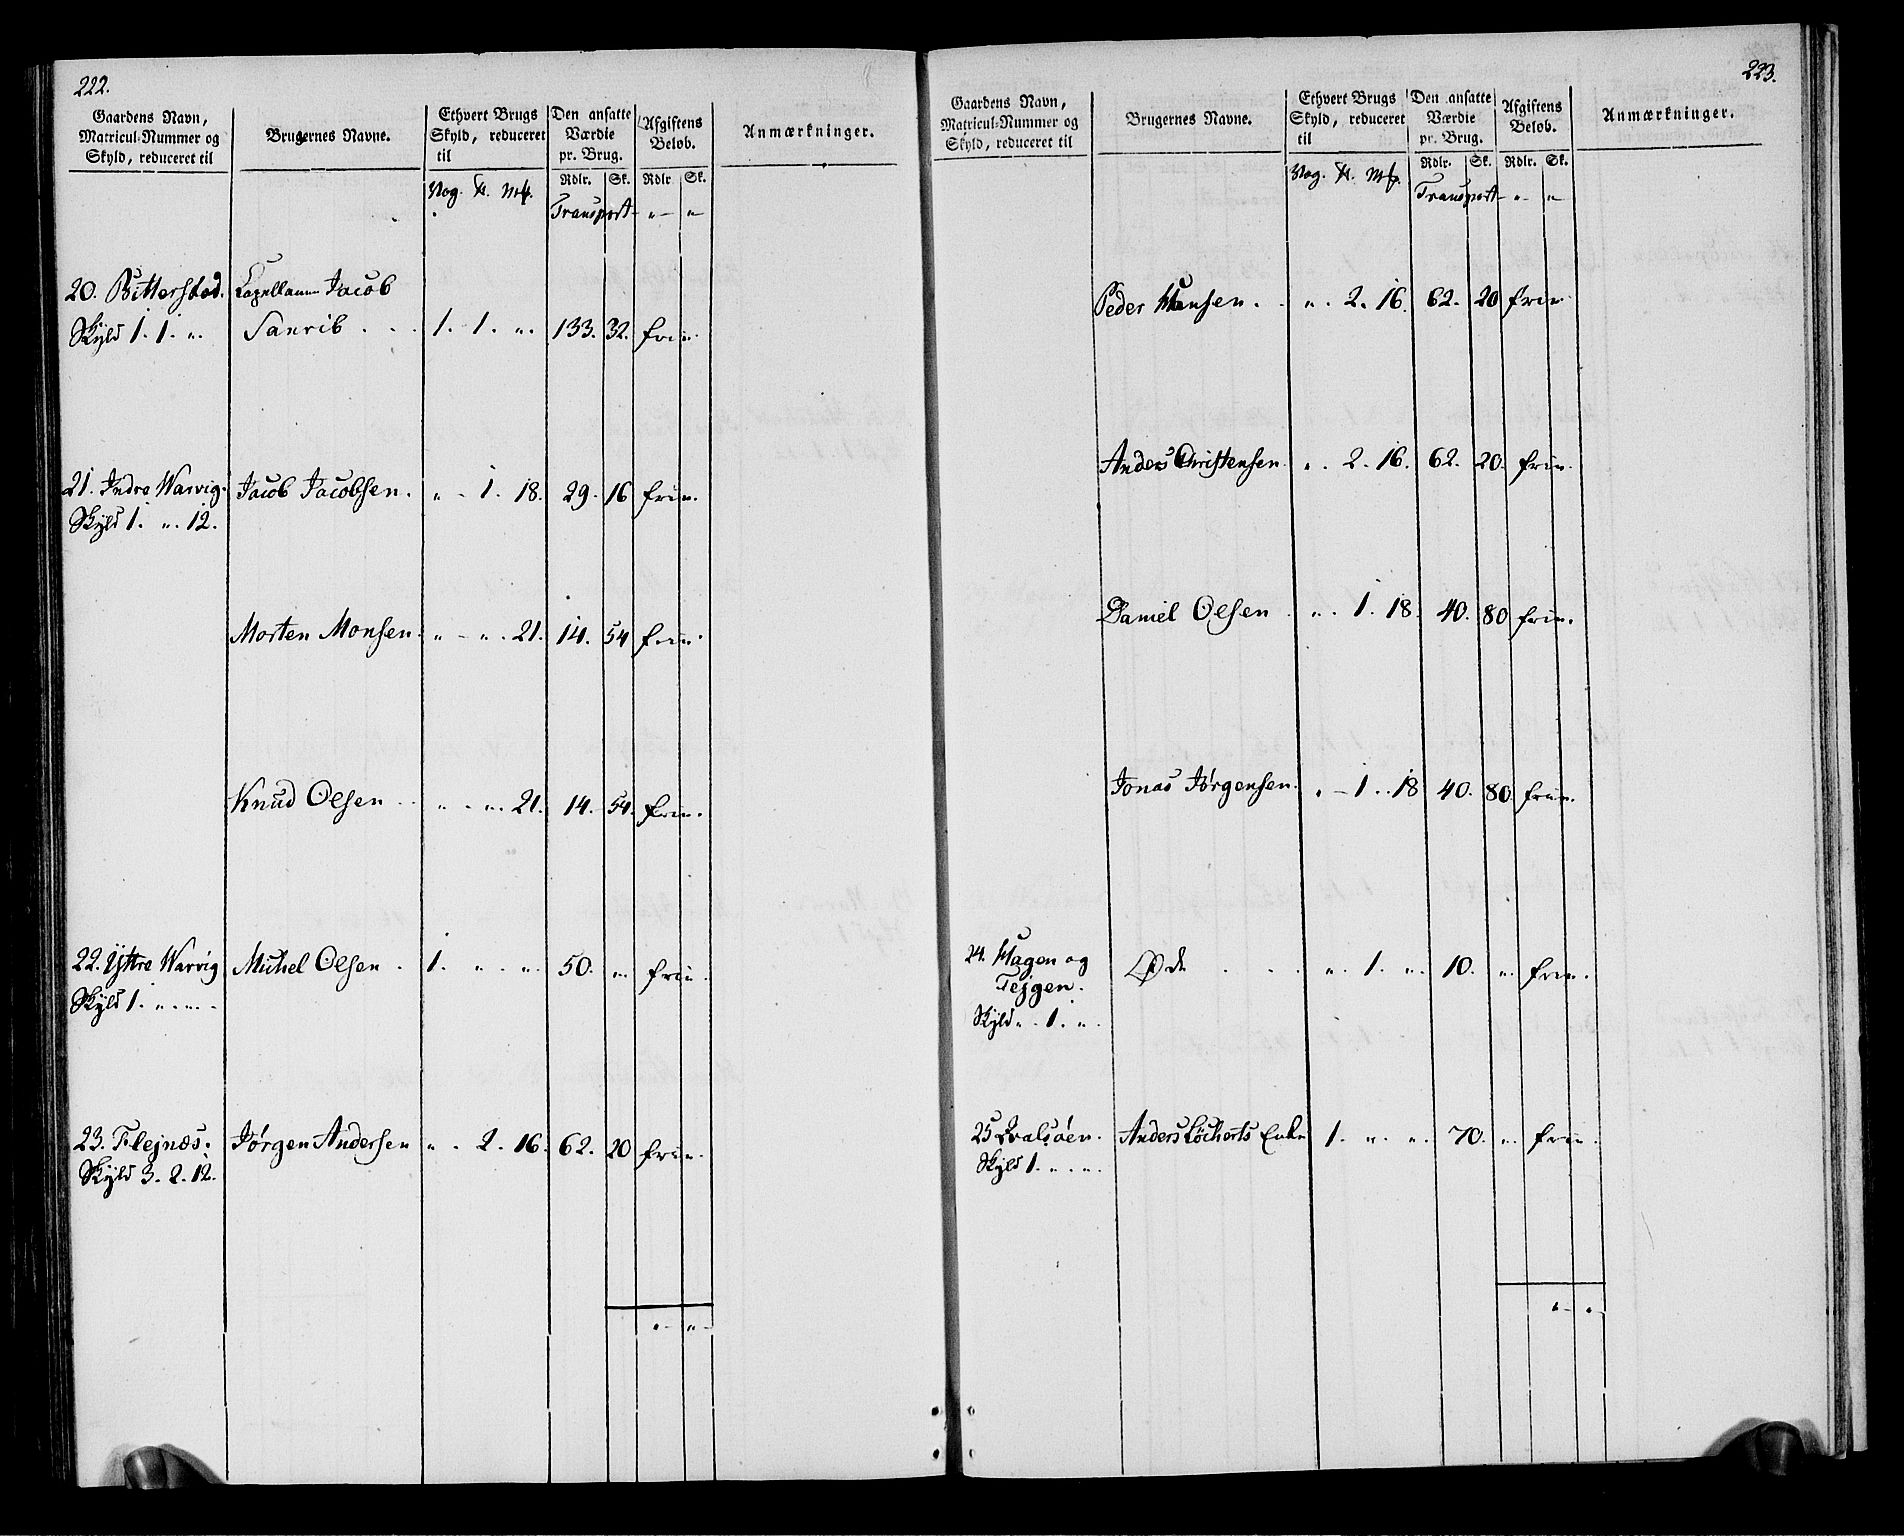 222.
Gaardens Navn, Matricul-Nummer og Skyld, reduceret til
Brugernes Navne.
Ethvert Brugs Skyld, reduceret til
Den ansatte Værdie pr. Brug.
Afgiftens Beløb.
Anmærkninger.
Rdlr. Sk. Rdlr. Sk.
Vog. ℔. Mk. Transport „ „
20. Bitterstad. Capellann Jacob
Skyld 1. 1. „. Sanrib . . . 1. 1. „. 133. 32. frie.
21. Indre Warvig. Jacob Jacobsen. „ - 1. 18. 29. 16 frie.
Skyld 1. „. 12.
Morten Monsen. „ - „. 21. 14. 54 frie.
Knud Olsen . . „ . „. 21. 14. 54. frie.
22. Yttre Warvig Michel Olsen . 1. „. „. 50. „. frie.
Skyld 1. „. „. -
23. Flejnæs. Jørgen Andersen „ . 2. 16. 62. 20 frie.
Skyld 3. 2. 12.
„ - „ -
223.
Gaardens Navn, Matricul-Nummer og Skyld, reduceret til
Brugernes Navne.
Ethvert Brugs Skyld, reduceret til
Den ansatte Værdie pr. Brug.
Afgiftens Beløb.
Anmærkninger.
Rdlr. Sk. Rdlr. Sk.
Vog. ℔. Mk. Transport „ „
Peder Hansen . . „ . 2. 16. 62. 20 frie.
Anders Christensen. „ . 2. 16. 62. 20. frie.
Daniel Olsen . „ . 1. 18. 40. 80 frie.
Jonas Jørgensen. „ - 1. 18 40. 80. frie.
24. Hagen og Øde . . . „. 1. „. 10. „. frie.
Tejgen.
Skyld „. 1. „.
25 Qvalsøen. Anders Löcherts Enke 1. „. „. 70. „. frie.
Skyld 1. „. „.
„ - „ -